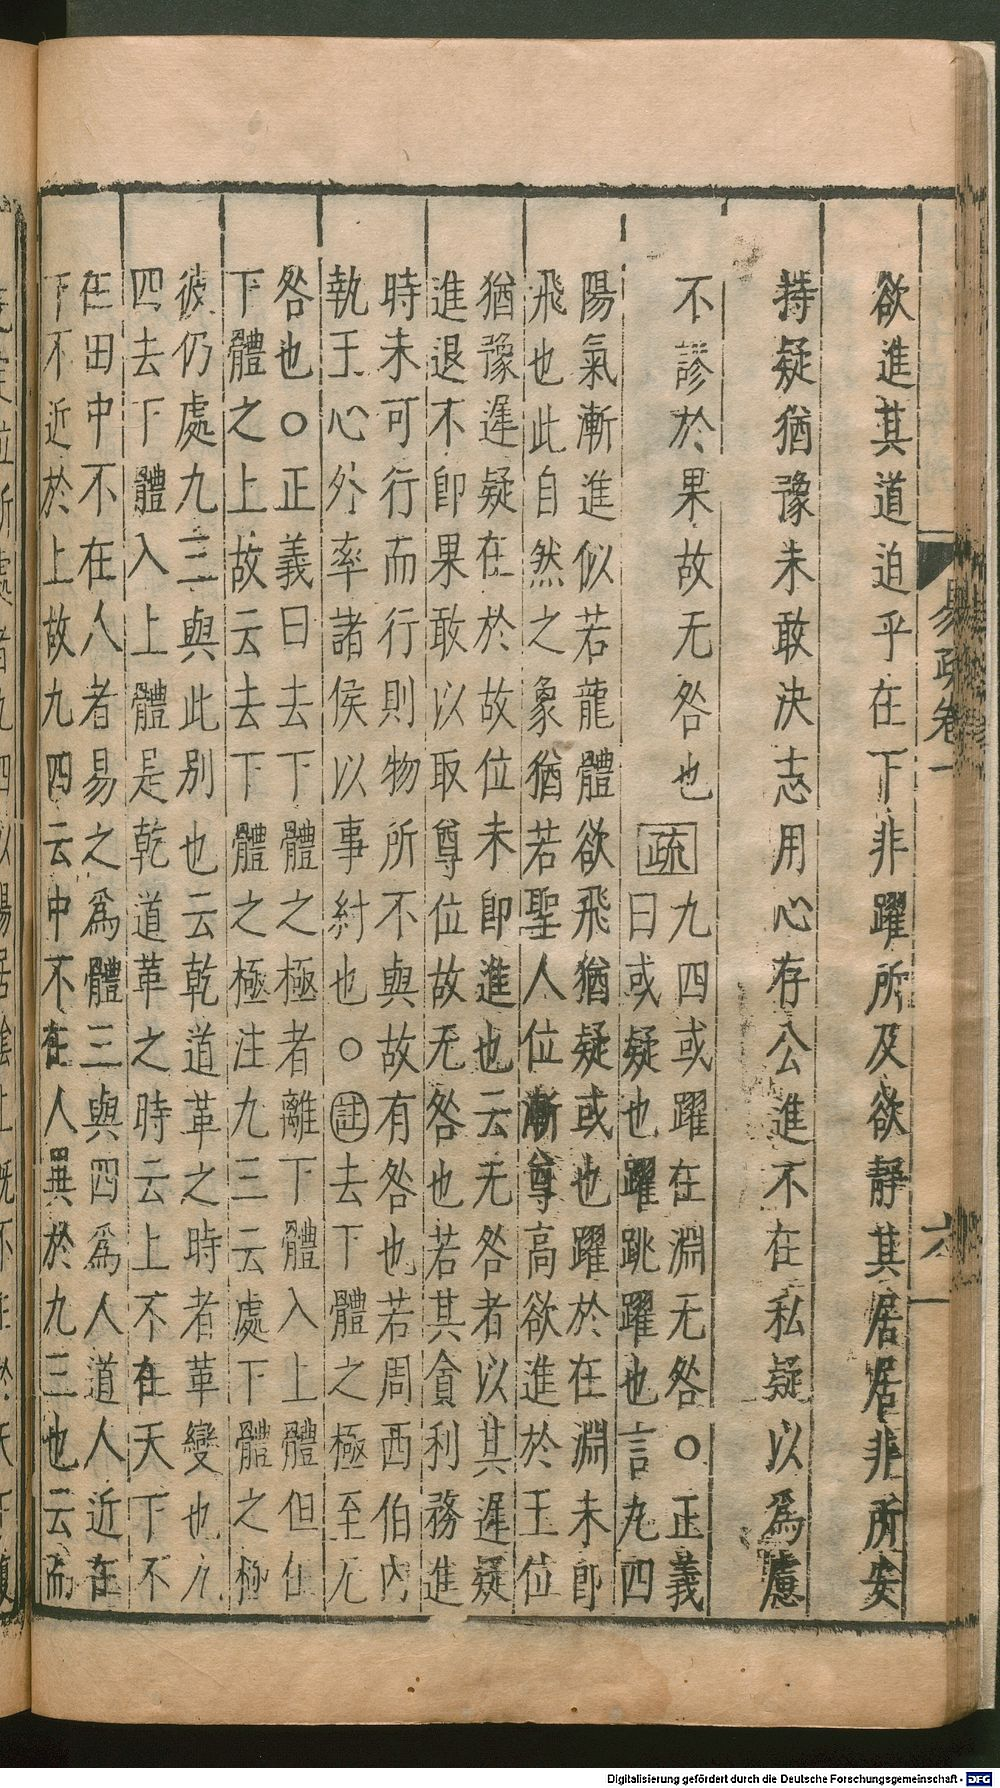 欲進其道迫乎在下非躍所及欲靜其居居非所安
持疑猶豫未敢決志用心存公進不在私疑以爲慮
不謬於果故无咎也疏
九四或躍在淵无咎○正義
曰或疑也躍跳躍也言九四
陽氣漸進似若龍體欲飛猶疑或也躍於在淵未卽
飛也此自然之象猶若聖人位漸尊高欲進於王位
猶豫遲疑在於故位未卽進也云无咎者以其遲疑
進退不卽果敢以取尊位故无咎也若其貪利務進
時未可行而行則物所不與故有咎也若周西伯內
執王心外率諸侯以事紂也○註去下體之極至无
咎也○正義曰去下體之極者離下體入上體但在
下體之上故云去下體之極注九三云處下體之極
彼仍處九三與此別也云乾道革之時者革變也九
四去下體入上體是乾道革之時云上不在天下不
在田中不在人者易之爲體三與四爲人道人近在
下不近於上故九四云中不在人異於九三也云而
易疏卷一
六
Digitalisierung gefördert durch die Deutsche Forschungsgemeinschaft - DFG